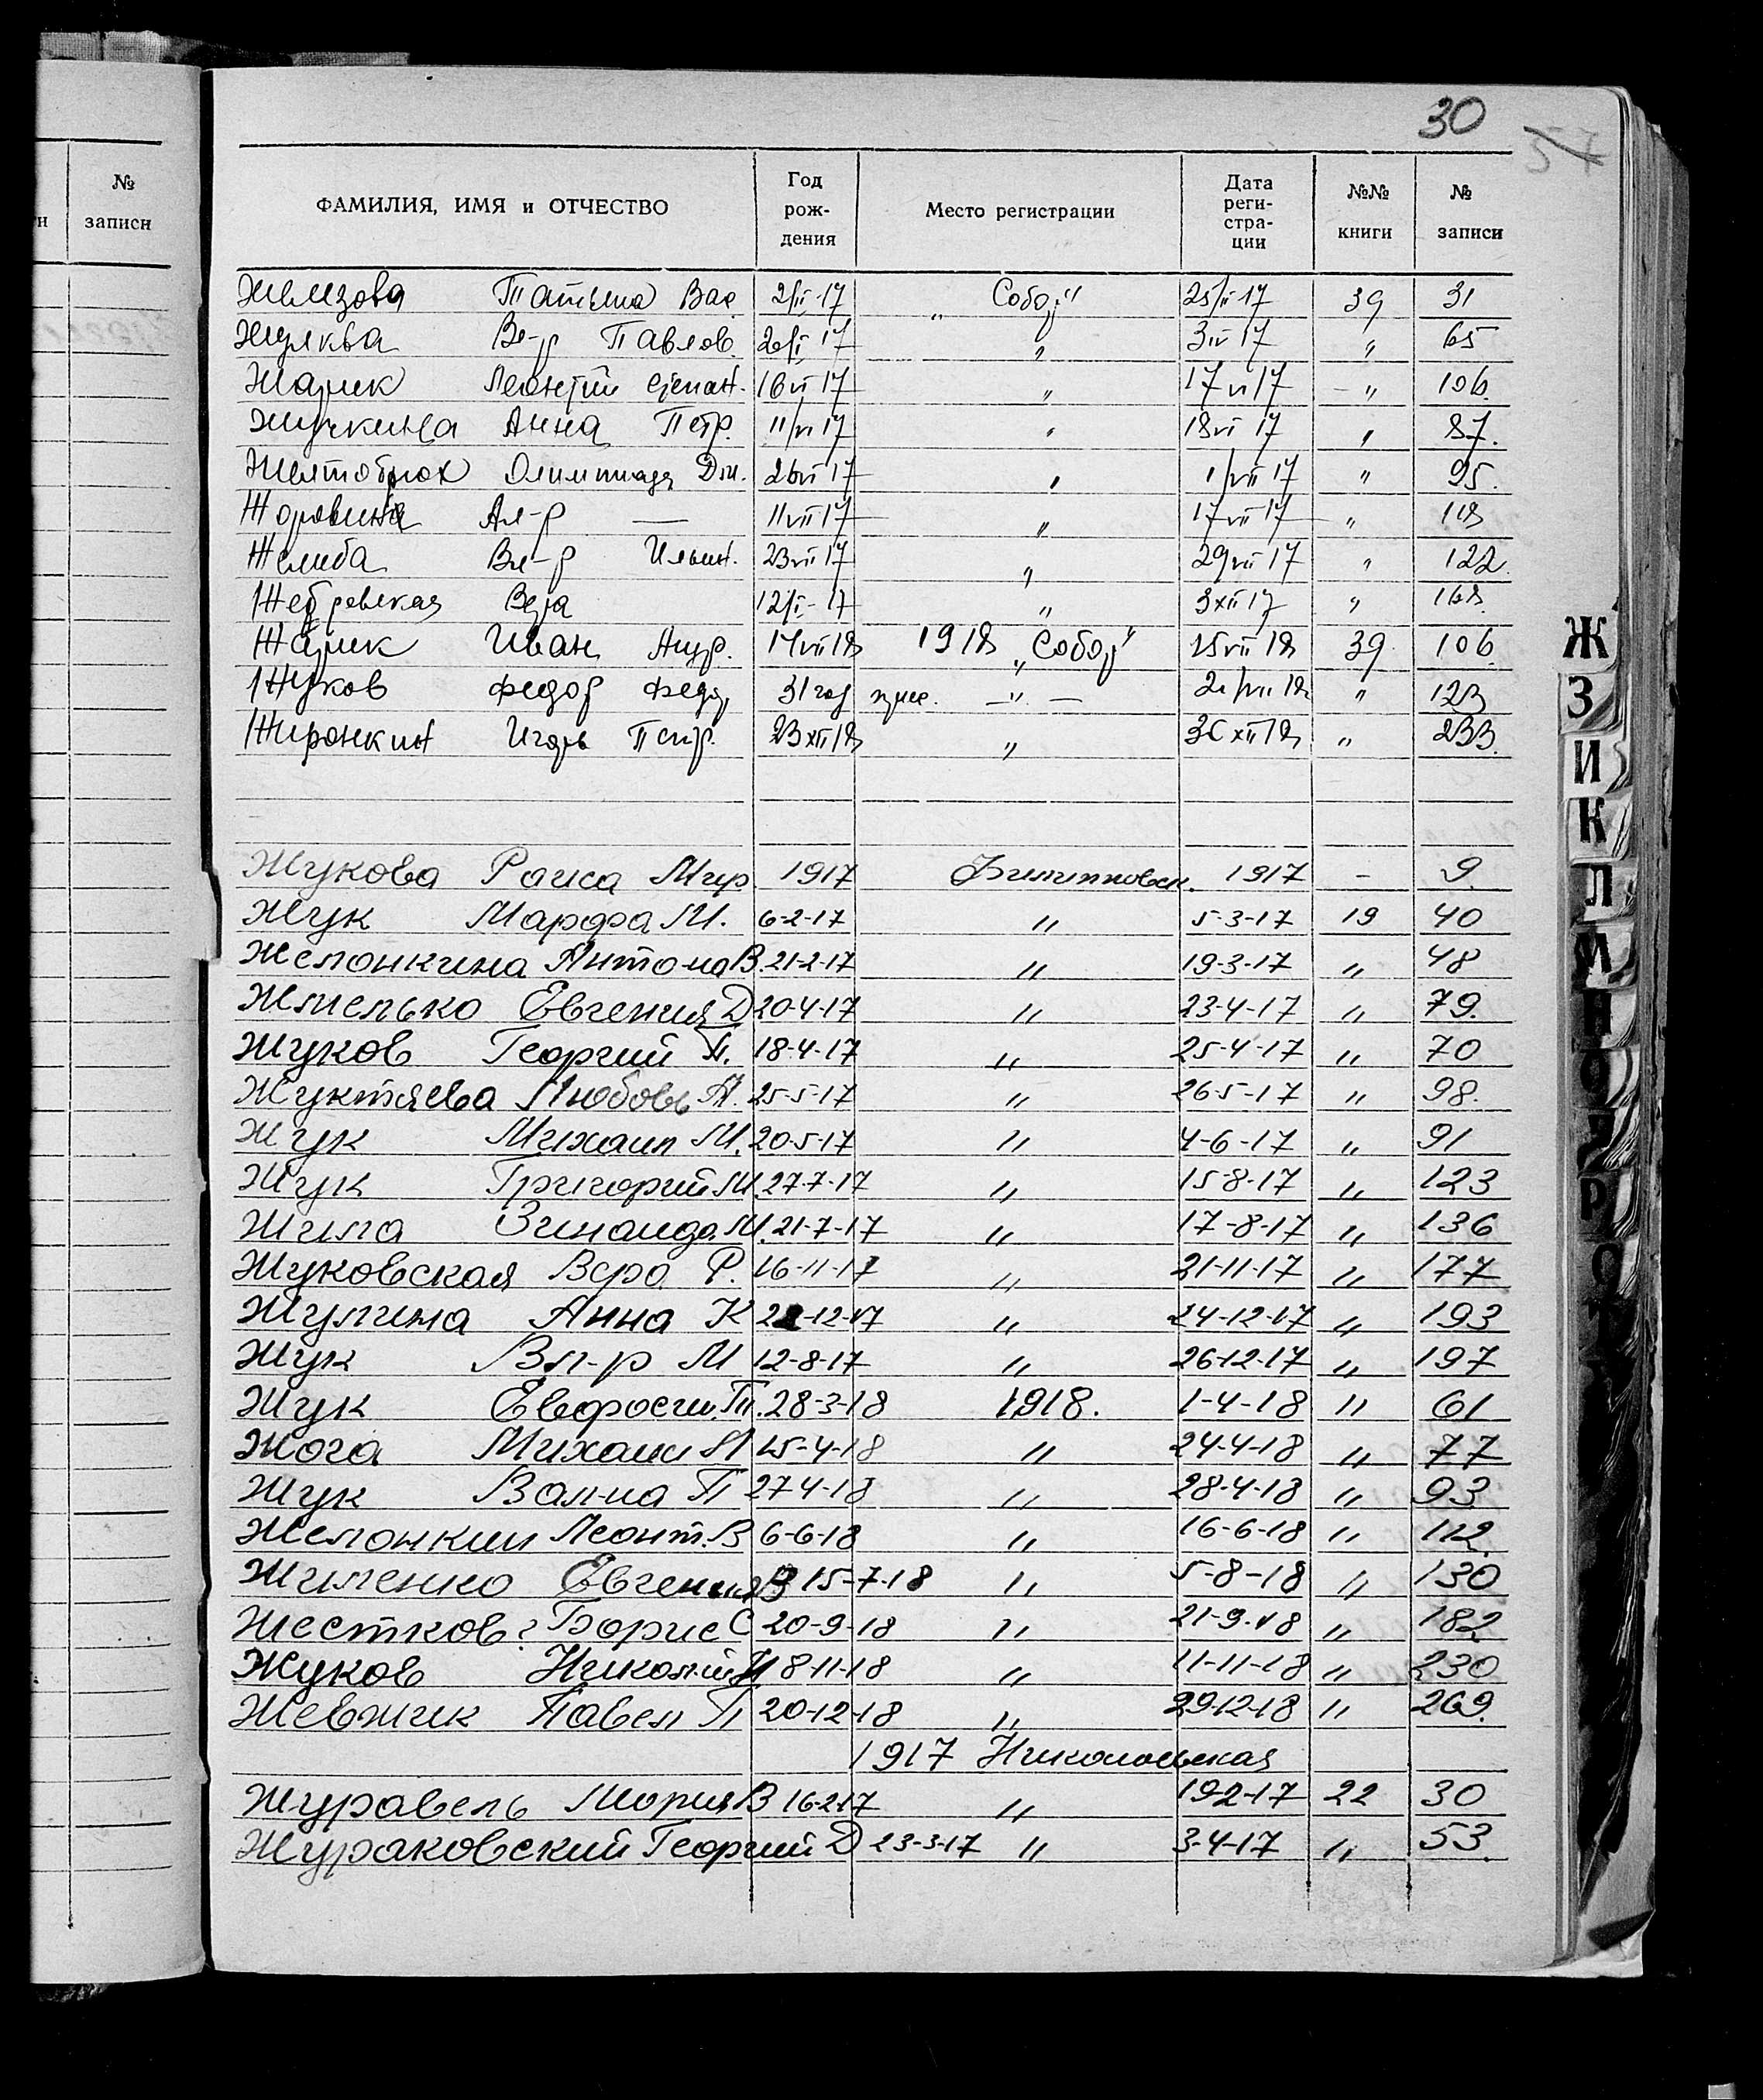 30
57
№ записи
ФАМИЛИЯ, ИМЯ и ОТЧЕСТВО Год рождения Место регистрации Дата регистрации №№ книги № записи
Татьяна Вас. 2/II-17 „Собор" 25/II 17 39 31
Вл-р Павлов. 17 „ 3 IV 17 „ 65
Жарик Леонтий Степан. 16 VI 17 „ 17 VI 17 — „ 106.
Жучкина Анна Петр. 11/VI 17 „ 18 VI 17 „ 87.
Желтобрюх Олимпиада Дм. 26 VI 17 „ 1/VII 17 „ 95.
Ал-р — 11 VII 17 „ 17 VII 17 „ 118
Желиба Вл-р Ильин. 23 VII 17 „ 29 VII 17 „ 122.
Жебровская Вера 17 „ 3 XII 17 „ 168.
Жарик Иван Андр. 14 VII 18 1918 „Собор" 15 VII 18 39 106.
Жуков Федор Федор 31 год — „ — VII 18 „ 123
Жиронкин Игорь Петр. 23 XII 18 „ 30 XII 18 „ 233.
Жукова Раиса Мир. 1917 Филипповск. 1917 — 9.
Жук Марфа М. 6-2-17 „ 5-3-17 19 40
Желонкина Антон-на В. 21-2-17 „ 19-3-17 „ 48
Жмелько Евгения Д 20-4-17 „ 23-4-17 „ 79.
Жуков Георгий П. 18-4-17 „ 25-4-17 „ 70
Жуктяева Любовь 25-5-17 „ 26-5-17 „ 98.
Жук Михаил М. 20-5-17 „ 4-6-17 „ 91
Жук Григорий М. 27-7-17 „ 15-8-17 „ 123
Жила Зинаида М. 21-7-17 „ 17-8-17 „ 136
Жуковская Вера Р. 16-11-17 „ 21-11-17 „ 177
Жулина Анна К -12-17 „ 24-12-17 „ 193
Жук Вл-р М 12-8-17 „ 26-12-17 „ 197
Жук Евфросин. П. 28-3-18 1918. 1-4-18 „ 61
Жога Михаил 15-4-18 „ 24-4-18 „ 77
Жук Вал-на П 27-4-18 „ 28-4-18 „ 93
Желонкин Леонт. В 6-6-18 „ 16-6-18 „ 112.
Жиленко Евгения В 15-7-18 „ 5-8-18 „ 130
Жестков? Борис С 20-9-18 „ 21-9-18 „ 182
Жуков Никол-й И 8-11-18 „ 11-11-18 „ 230
Жевжик Павел П 20-12-18 „ 29-12-18 „ 269.
1917 Никольская
Журавель Мария В 16-2-17 „ 19-2-17 22 30
Жураковский Георгий Д 23-3-17 „ 3-4-17 „ 53.
Ж
З
И
К
Л
М
Н
О
П
Р
С
Т